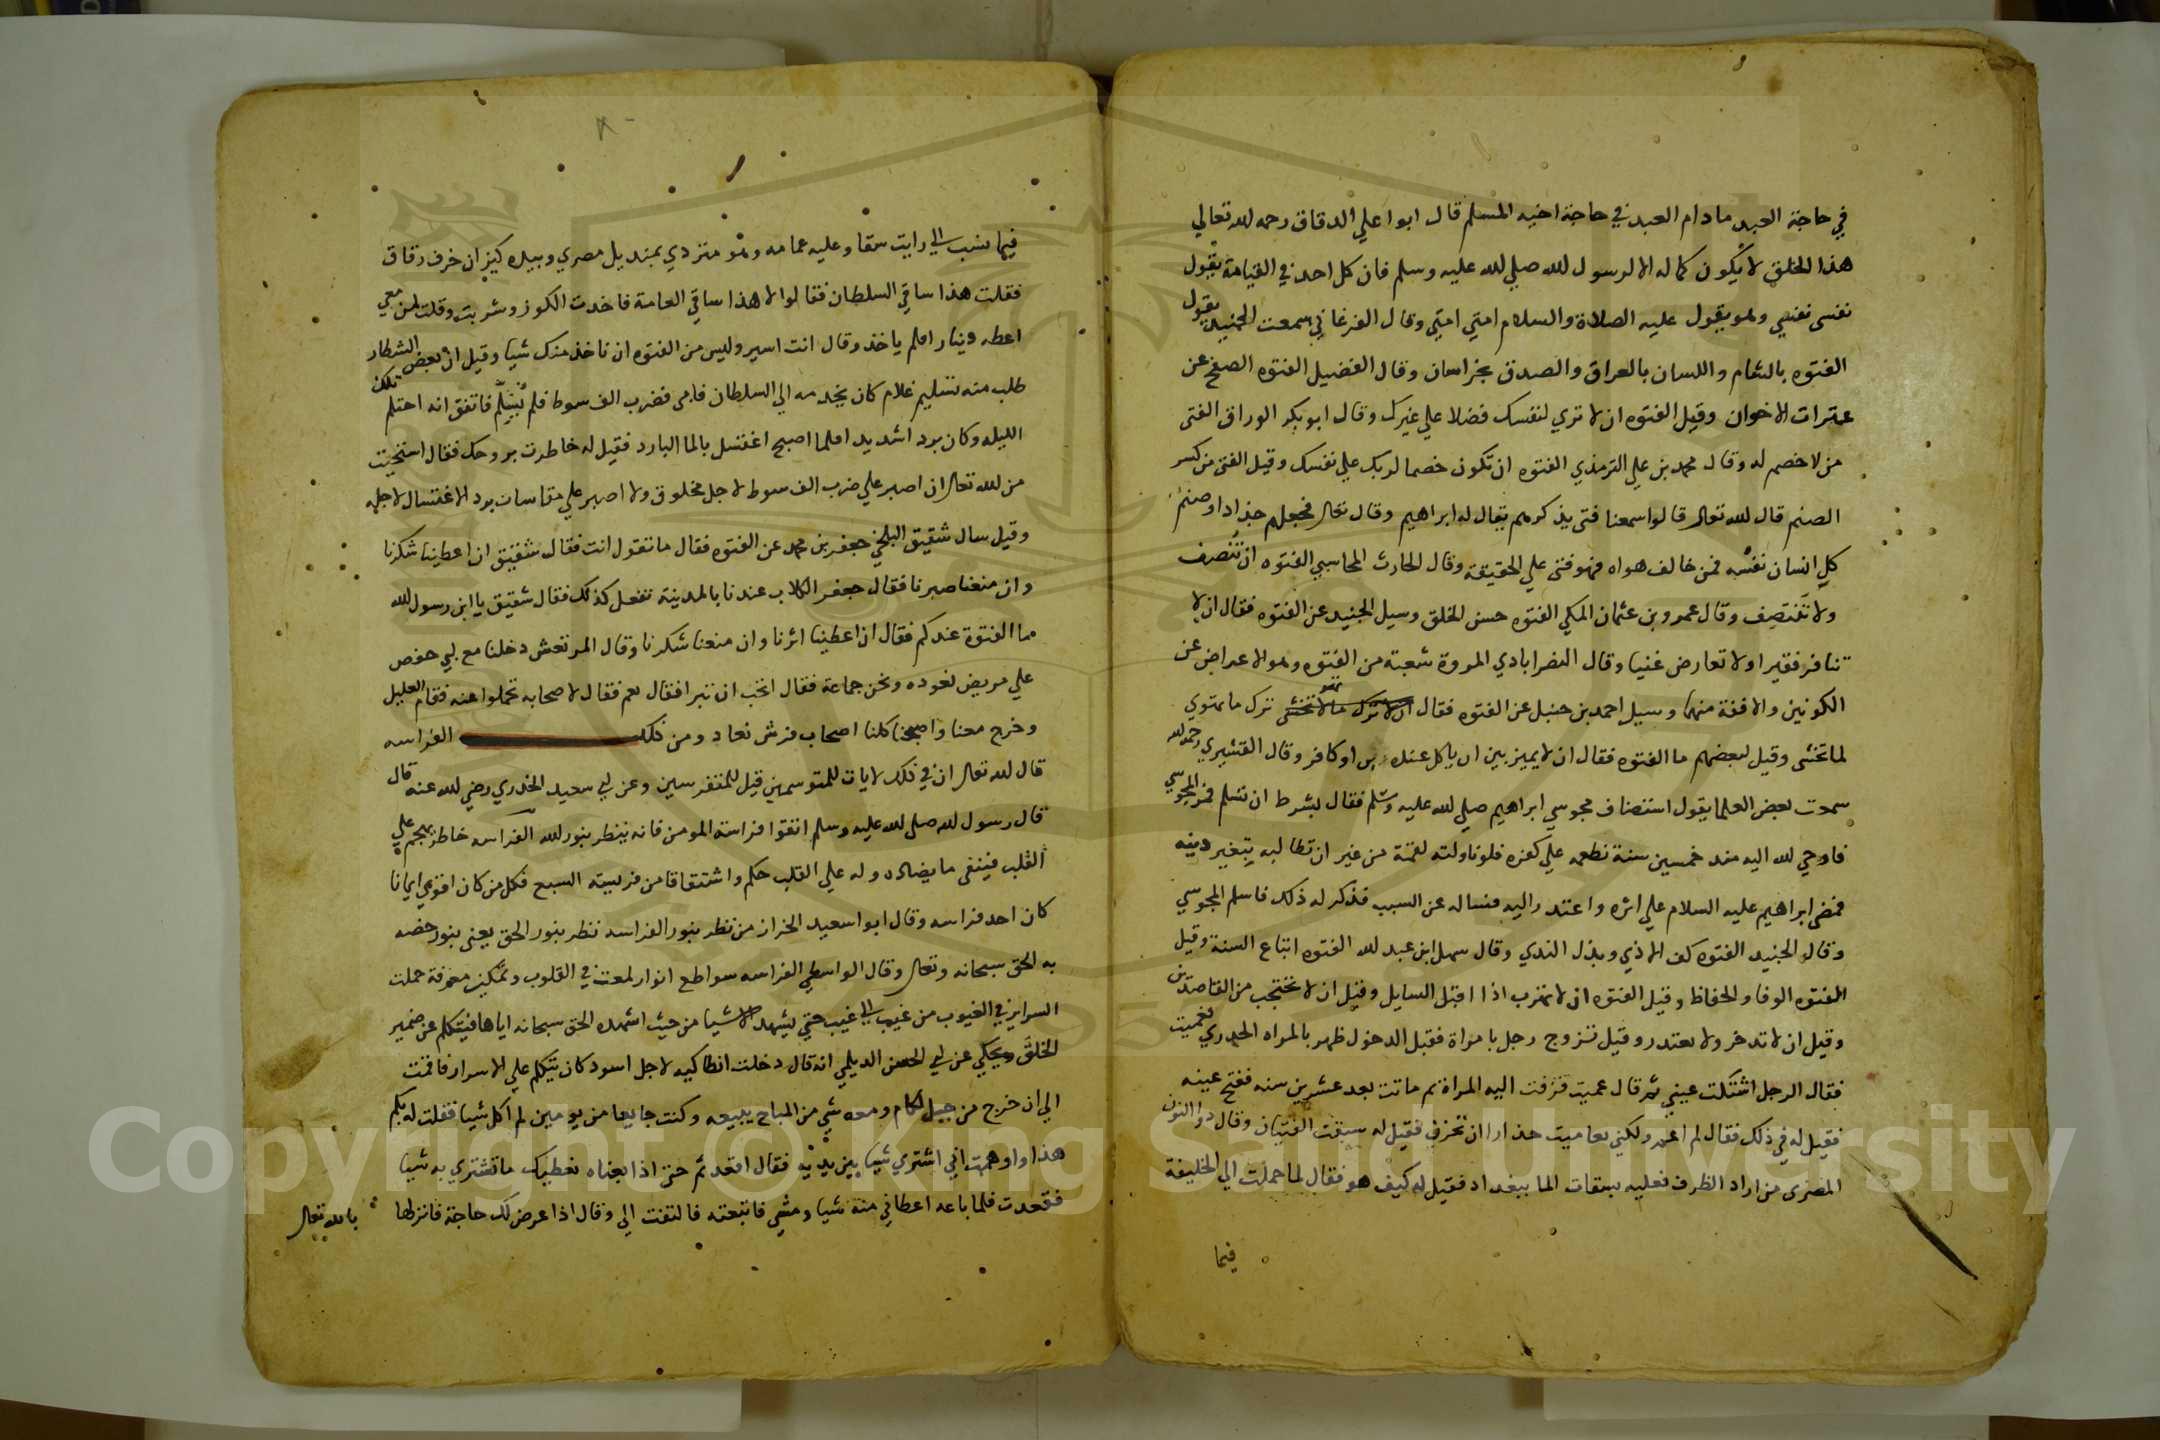 في حاجة العبد مادام العبد في حاجة اخيه المسلم قال ابوا علي الدقاق رحمه لله تعالي
هذا الخلق لا يكون كماله الا لرسول لله صلي لله عليه وسلم فان كل احد في القيامة يقول
نفسى نفسي وهو يقول عليه الصلاة والسلام امتي امتي وقال الفرغاني سمعت الجنيد يقول
الفتوه بالشام واللسان بالعراق والصدق بخراسان وقال الفضيل الفتوه الصفح عن
عثرات الاخوان وقيل الفتوه ان لا تري لنفسك فضلا علي غيرك وقال ابو بكر الوراق الفتى
من لا خصم له وقال محمد بن علي الترمذي الفتوه ان تكون خصما لربك علي نفسك وقيل الفتى من كسر
الصنم قال لله تعالى قالوا سمعنا فتى يذكرهم يقال له ابراهيم وقال تعالى فجعلهم جذاذا وصنم
كل انسان نفسه فمن خالف هواه فهو فتى علي الحقيقة وقال الحارث المحاسبي الفتوه ان تنصف
ولا تنتصف وقال عمرو بن عثمان المكي الفتوه حسن الخلق وسيل الجنيد عن الفتوه فقال ان لا
تنافر فقيرا ولا تعارض غنيا وقال النصرابادي المروة شعبة من الفتوه وهو الاعراض عن
الكونين والانفة منهما وسيل احمد بن حنبل عن الفتوه فقال ترك ما تهوي
لما تخشى وقيل لبعضهم ما الفتوه فقال ان لا يميز بين ان ياكل عنده او كافر وقال القشيري رحمه لله
سمعت بعض العلما يقول استضاف مجوسي ابراهيم صلي لله عليه وسلم فقال بشرط ان تسلم فمر المجوسي
فاوحي لله اليه منذ خمسين سنة نطعمه علي كفره فلو ناولته لقمة من غير ان تطالبه بتغير دينه
فمضى ابراهيم عليه السلام علي اثره واعتذر اليه فساله عن السبب فذكر له ذلك فاسلم المجوسي
وقال الجنيد الفتوه كف الاذي وبذل الندي وقال سهل ابن عبد لله الفتوه اتباع السنة وقيل
الفتوه الوفا والحفاظ وقيل الفتوه ان لا تهرب اذا اقبل السايل وقيل ان لا تحتجب من القاصدين
وقيل ان لا تدخر ولا تعتذر وقيل تزوج رجل بامراة فقبل الدخول ظهر بالمراه الجدري
فقال الرجل اشتكت عيني ثم قال عميت فزفت اليه المراة ثم ماتت بعد عشرين سنه ففتح عينه
فقيل له في ذلك فقال لم اعم ولكني تعاميت حذارا ان تحزن فقيل له سبقت الفتيان وقال ذوا النون
المصرى من اراد الظرف فعليه بسقات الما ببغداد فقيل له كيف هو فقال لما حملت الي الخليفة
فيما
٨٠
فيما نسب الي رايت سقا وعليه عمامه وهو متردي بمنديل مصري وبيده كيزان خزف رقاق
فقلت هذا ساقي السلطان فقالوا لا هذا ساقي العامة فاخدت الكوز وشربت وقلت لمن معي
اعطه دينارا فلم ياخذ وقال انت اسير وليس من الفتوه ان ناخذ منك شيا وقيل ان بعض الشطار
طلب منه تسليم غلام كان يخدمه الي السلطان فابى فضرب الف سوط فلم يسلم فاتفق انه احتلم تلك
الليله وكان بردا شديدا فلما اصبح اغتسل بالما البارد فقيل له خاطرت بروحك فقال استحيت
من لله تعالى ان اصبر علي ضرب الف سوط لاجل مخلوق ولا اصبر علي مقاسات برد الاغتسال لاجله
وقيل سال شقيق البلخي جعفر بن محمد عن الفتوه فقال ما تقول انت فقال شقيق ان اعطينا شكرنا
وان منعنا صبرنا فقال جعفر الكلاب عندنا بالمدينة تفعل كذلك فقال شقيق يا ابن رسول لله
ما الفتوة عندكم فقال ان اعطينا اثرنا وان منعنا شكرنا وقال المرتعش دخلنا مع ابي حفص
علي مريض نعوده ونحن جماعة فقال اتحب ان تبرا فقال نعم فقال لاصحابه تحملوا عنه فقام العليل
وخرج معنا واصبحنا كلنا اصحاب فرش نعاد ومن ذلك الفراسه
قال لله تعالى ان في ذلك لايات للمتوسمين قيل للمتفرسين وعن ابي سعيد الخدري رضي لله عنه قال
قال رسول لله صلي لله عليه وسلم اتقوا فراسة المومن فانه ينظر بنور لله الفراسه خاطر يهجم علي
القلب فينفي ما يضاده وله علي القلب حكم واشتقاقا من فريسة السبع فكل من كان اقوي ايمانا
كان احد فراسه وقال ابوا سعيد الخراز من نظر بنور الفراسه نظر بنور الحق يعني بنور خصه
به الحق سبحانه وتعالى وقال الواسطي الفراسه سواطع انوار لمعت في القلوب وتمكين معرفة حملت
السراير في الغيوب من غيب الي غيب حتي يشهد الاشيا من حيث اشهده الحق سبحانه اياها فيتكلم عن ضمير
الخلق ويحكي عن ابي الحسن الديلمي انه قال دخلت انطاكيه لاجل اسود كان يتكلم علي الاسرار فاقمت
الي ان خرج من جبل لكام ومعه شي من المباح يبيعه وكنت جايعا من يومين لم اكل شيا فقلت له بكم
هذا واوهمت اني اشتري شيا بين يديه فقال اقعد ثم حتى اذا بعناه نعطيك ما تشتري به شيا
فقعدت فلما باعه اعطاني منه شيا ومشي فاتبعته فالتفت الي وقال اذا عرض لك حاجة فانزلها
بالله تعالى
Copyright © King Saud University